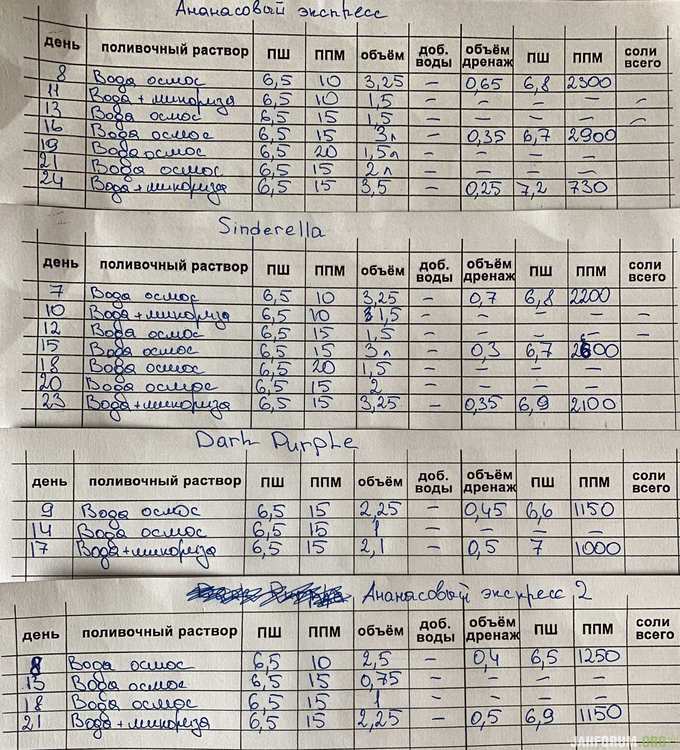 Ананасовый экспресс
день поливочный раствор ПШ ППМ объём доб. воды объём дренаж ПШ ППМ соли всего
8 Вода осмос 6,5 10 3,25 – 0,65 6,8 2300
11 Вода + микориза 6,5 10 1,5 – – – – –
13 Вода осмос 6,5 15 1,5 – – – – –
16 Вода осмос 6,5 15 3л – 0,35 6,7 2900
19 Вода осмос 6,5 20 1,5л – – – –
21 Вода осмос 6,5 15 2л – – – –
24 Вода+микориза 6,5 15 3,5 – 0,25 7,2 730
Sinderella
день поливочный раствор ПШ ППМ объём доб. воды объём дренаж ПШ ППМ соли всего
7 Вода осмос 6,5 10 3,25 – 0,7 6,8 2200
10 Вода+микориза 6,5 10 1,5 – – – – –
12 Вода осмос 6,5 15 1,5 – – – – –
15 Вода осмос 6,5 15 3л – 0,3 6,7 2600
18 Вода осмос 6,5 20 1,5 – – – –
20 Вода осмос 6,5 15 2 – – – –
23 Вода+микориза 6,5 15 3,25 – 0,35 6,9 2100
Dark Purple
день поливочный раствор ПШ ППМ объём доб. воды объём дренаж ПШ ППМ соли всего
9 Вода осмос 6,5 15 2,25 – 0,45 6,6 1150
14 Вода осмос 6,5 15 1 – – – –
17 Вода+микориза 6,5 15 2,1 – 0,5 7 1000
Ананасовый экспресс 2
день поливочный раствор ПШ ППМ объём доб. воды объём дренаж ПШ ППМ соли всего
8 Вода осмос 6,5 10 2,5 – 0,4 6,5 1250
15 Вода осмос 6,5 15 0,75 – – – –
18 Вода осмос 6,5 15 1 – – – –
21 Вода+микориза 6,5 15 2,25 – 0,5 6,9 1150